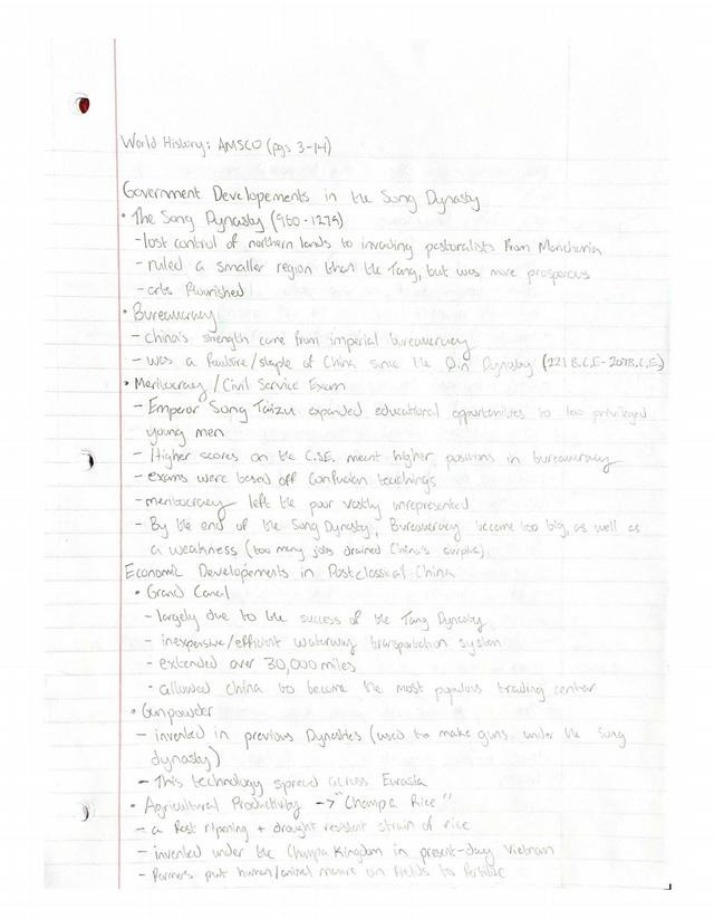 World History: AMSCO (pgs 3-14)
Government Developements in the Song Dynasty
• The Song Dynasty (960-1279)
- lost control of northern lands to invading pastoralists from Manchuria
- ruled a smaller region than the Tang, but was more prosperous
- arts flourished
• Bureaucracy
- China's strength came from imperial bureaucracy
- was a feature/staple of China since the Qin Dynasty (221 B.C.E-207B.C.E)
• Meritocracy / Civil Service Exam
- Emperor Song Taizu expanded educational opportunities to low privileged
young men
- Higher scores on the C.S.E. meant higher positions in bureaucracy
- exams were based off Confucian teachings
- meritocracy left the poor vastly unrepresented
- By the end of the Song Dynasty, Bureaucracy became too big, as well as
a weakness (too many jobs drained China's surplus)
Economic Developements in Postclassical China
• Grand Canal
- largely due to the success of the Tang Dynasty
- inexpensive/efficient waterway transportation system
- extended over 30,000 miles
- allowed China to become the most populous trading center
• Gunpowder
- invented in previous Dynasties (used to make guns under the Song
dynasty)
- This technology spread across Eurasia
• Agricultural Productivity -> "Champa Rice"
- a fast ripening + drought resistent strain of rice
- invented under the Champa Kingdom in present-day Vietnam
- farmers put human/animal manure on fields to fertilize